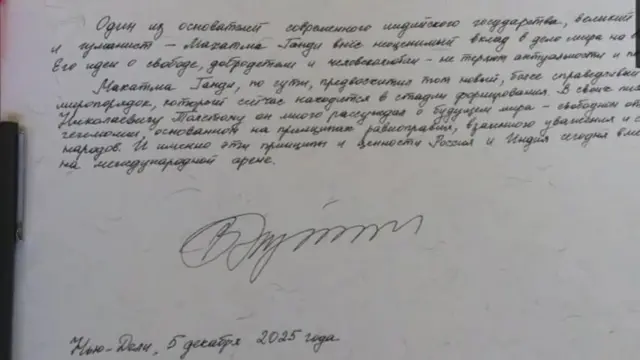 Один из основателей современного индийского государства, великий
и гуманист – Махатма Ганди внёс неоценимый вклад в дело мира на
Его идеи о свободе, добродетели и человеколюбии – не теряют актуальности и
Махатма Ганди, по сути, предвосхитил тот новый, более справедливый
миропорядок, который сейчас находится в стадии формирования. В своих
Николаевичу Толстому он много рассуждал о будущем мира – свободном от
гегемонии, основанном на принципах равноправия, взаимного уважения и
народов. И именно эти принципы и ценности Россия и Индия сегодня
на международной арене.
Нью-Дели, 5 декабря 2025 года.